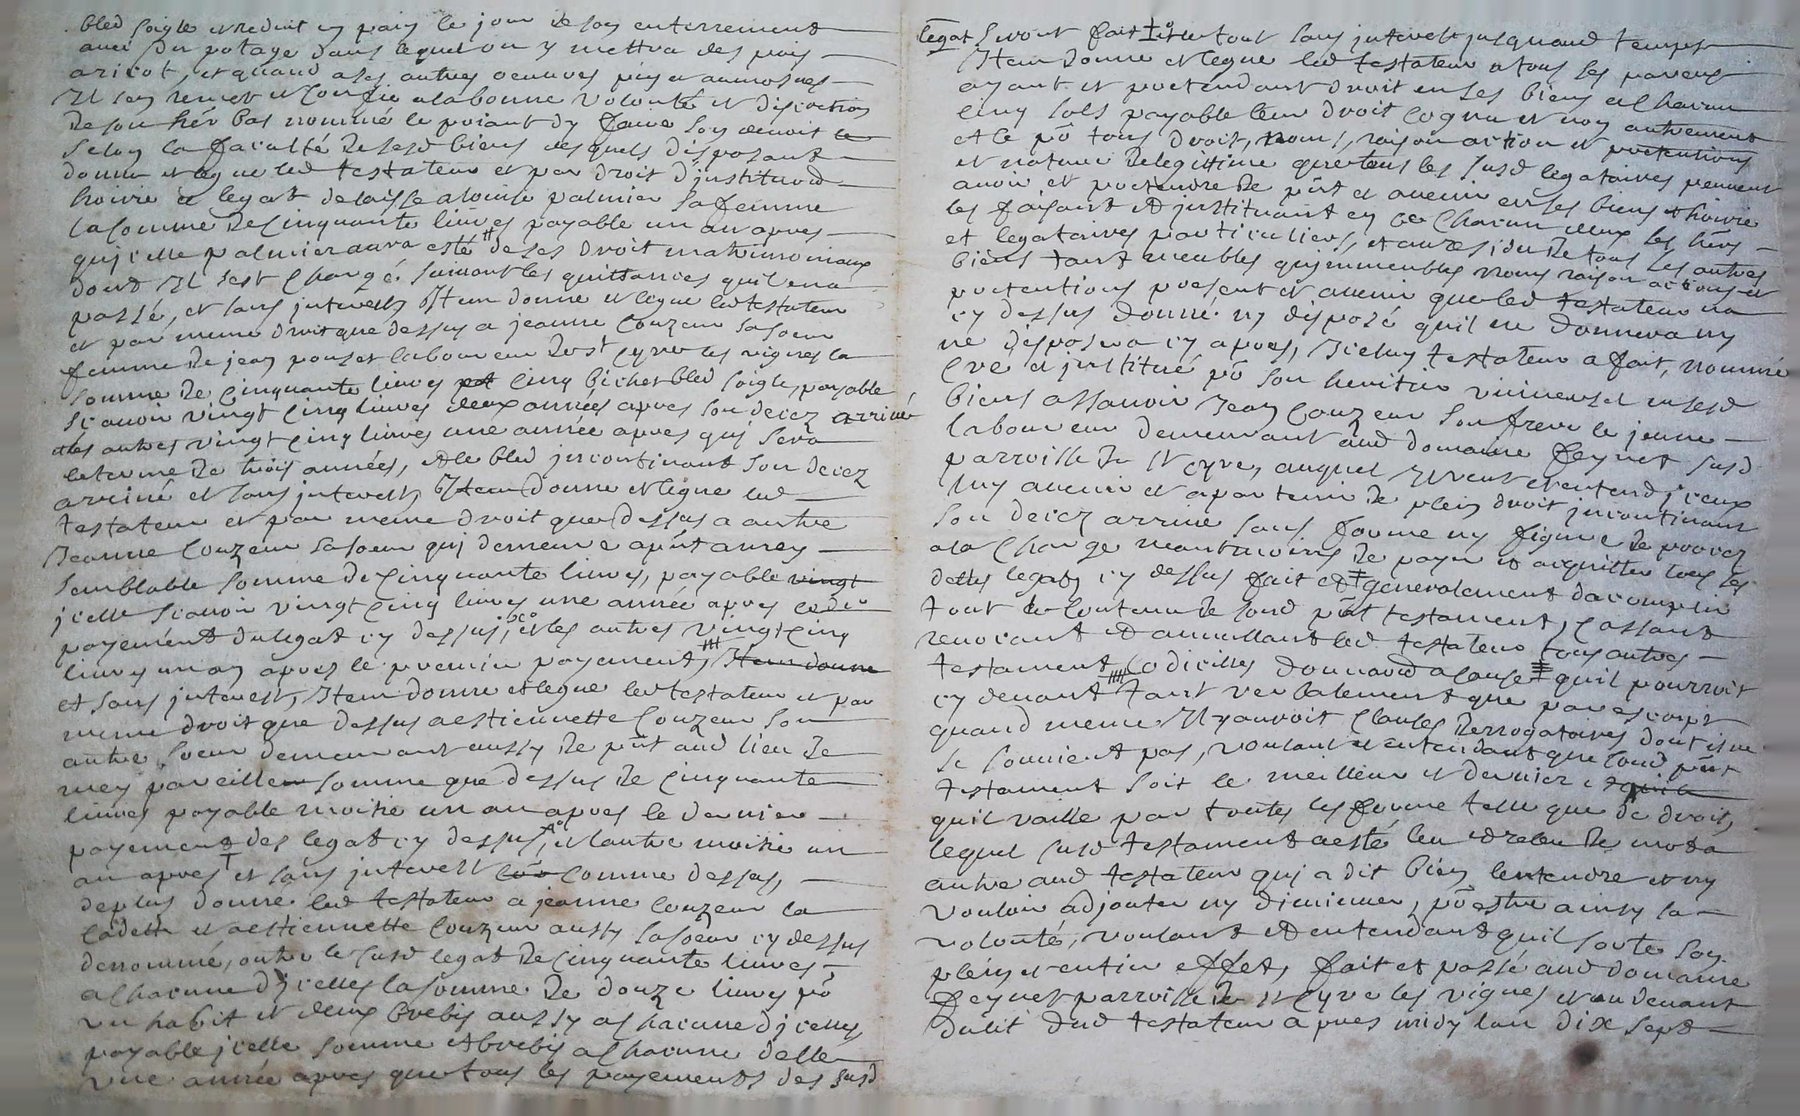 bled soigle et reduit en pain le jour de son enterrement
avec du potage dans lequel on y mettra des pois
aricot, et quand a ses autres oeuvres pies et aumosnes
Il sen remet et confie a la bonne volonté et discretion
de son hér bas nommé le priant dy faire son devoir
selon la faculté de sesd biens desquels disposant
donne et legue led testateur et par droit dinstitution
hoirie et legat delaisse a loinse palmier sa femme
la somme de cinquante livres payable un an apres
quicelle palmier aura esté de ses droit matrimoniaux
dont Il sest chargé suivant les quittances quil en a
passé, et sans interests Item donne et legue led testateur
et par meme droit que dessus a jeanne Couzeur sa soeur
femme de jean pouzet laboureur de st Cyre les vignes la
somme de cinquante livres cinq bichet bled soigle, payable
scavoir vingt cinq livres deux années apres son decez arrivé
et les autres vingt cinq livres une année apres qui sera
le terme de trois années, et le bled jncontinant son decez
arrivé et sans interests, Item donne et legue led
testateur et par meme droit que dessus a autre
Jeanne Couzeur sa soeur qui demeure a pnt au rey
semblable somme de cinquante livres, payable vingt
jcelle scavoir vingt cinq livres une année apres
payement du legat cy dessus, et les autres vingt cinq
livres un an apres le premier payement, Item donne
et sans jnterests, Item donne et legue led testateur et par
meme droit que dessus a estiennette Couzeur son
autre soeur demeurant aussy de pnt aud lieu de
rney pareille somme que dessus de cinquante
livres payable moitie un an apres le dernier
payement des legat cy dessus, et lautre moitie un
an apres et sans jnterest comme dessus,
deplus donne led testateur a jeanne Couzeur la
cadette et a estiennette Couzeur aussy sa soeur cy dessus
denommé, outre le susd legat de cinquante livres,
a chacune djcelles la somme de douze livres pō
un habit et deux brebis aussy a chacune djcelles,
payable jcelle somme et brebis a chacune delle
une année apres que tous les payements des susd
legat seront fait et le tout sans jnterest jusquaud temps
Item donne et legue led testateur a tous ses parens
ayant et pretendant droit en ses biens a chacun
cinq sols payable leur droit cognu et non autrement
et ce pō tous droit, noms, raison action et pretentions
et nature de legittime que tous les susd legataires peuvent
avoir et pretendre de pnt et avenir en ses biens et hoirie
les faisant et jnstituant en ce chacun deux ses hérs
et legataires particuliers, et au residu de tous ses autres
biens tant meubles quimmeubles noms raison actions et
pretentions present et avenir que led testateur na
cy dessus donné ny disposé quil ne donnera ny
ne disposera cy apres, Jceluy testateur a fait, nommé
cré et jnstitué pō son heritier universel en sesd
biens assavoir Jean Couzeur son frere le jeune
laboureur demeurant aud domaine feynet susd
parroisse de st Cyre, auquel Il veut et entend jceux
luy avenir et apartenir de plein droit jncontinant
son decez arrivé sans forme ny figure de procez
a la charge neantmoins de payer et acquitter tous les
dettes legats cy dessus fait et generalement dacomplir
tout le contenu de soud pnt testament, cassant
revocant et annullant led testateur tous autres
testament codicilles donnation a cause quil pourroit
cy devant tant verbalement que par escript
quand meme Il y auroit clauses derrogatoires dont il ne
se souvient pas, voulant et entendant que soud pnt
testament soit le meilleur et dernier et quil
quil vaille par toutes les forme telle que de droit,
lequel susd testament a esté leu et releu de mot a
autre aud testateur qui a dit bien lentendre et ny
vouloir adjouter ny diminuer, pō estre ainsy sa
volonté, voulant et entendant quil sorte son
plein et entier effet, fait et passé aud domaine
feynet parroisse de st Cyre les vignes et au devant
du lit dud testateur apres midy lan dix sept